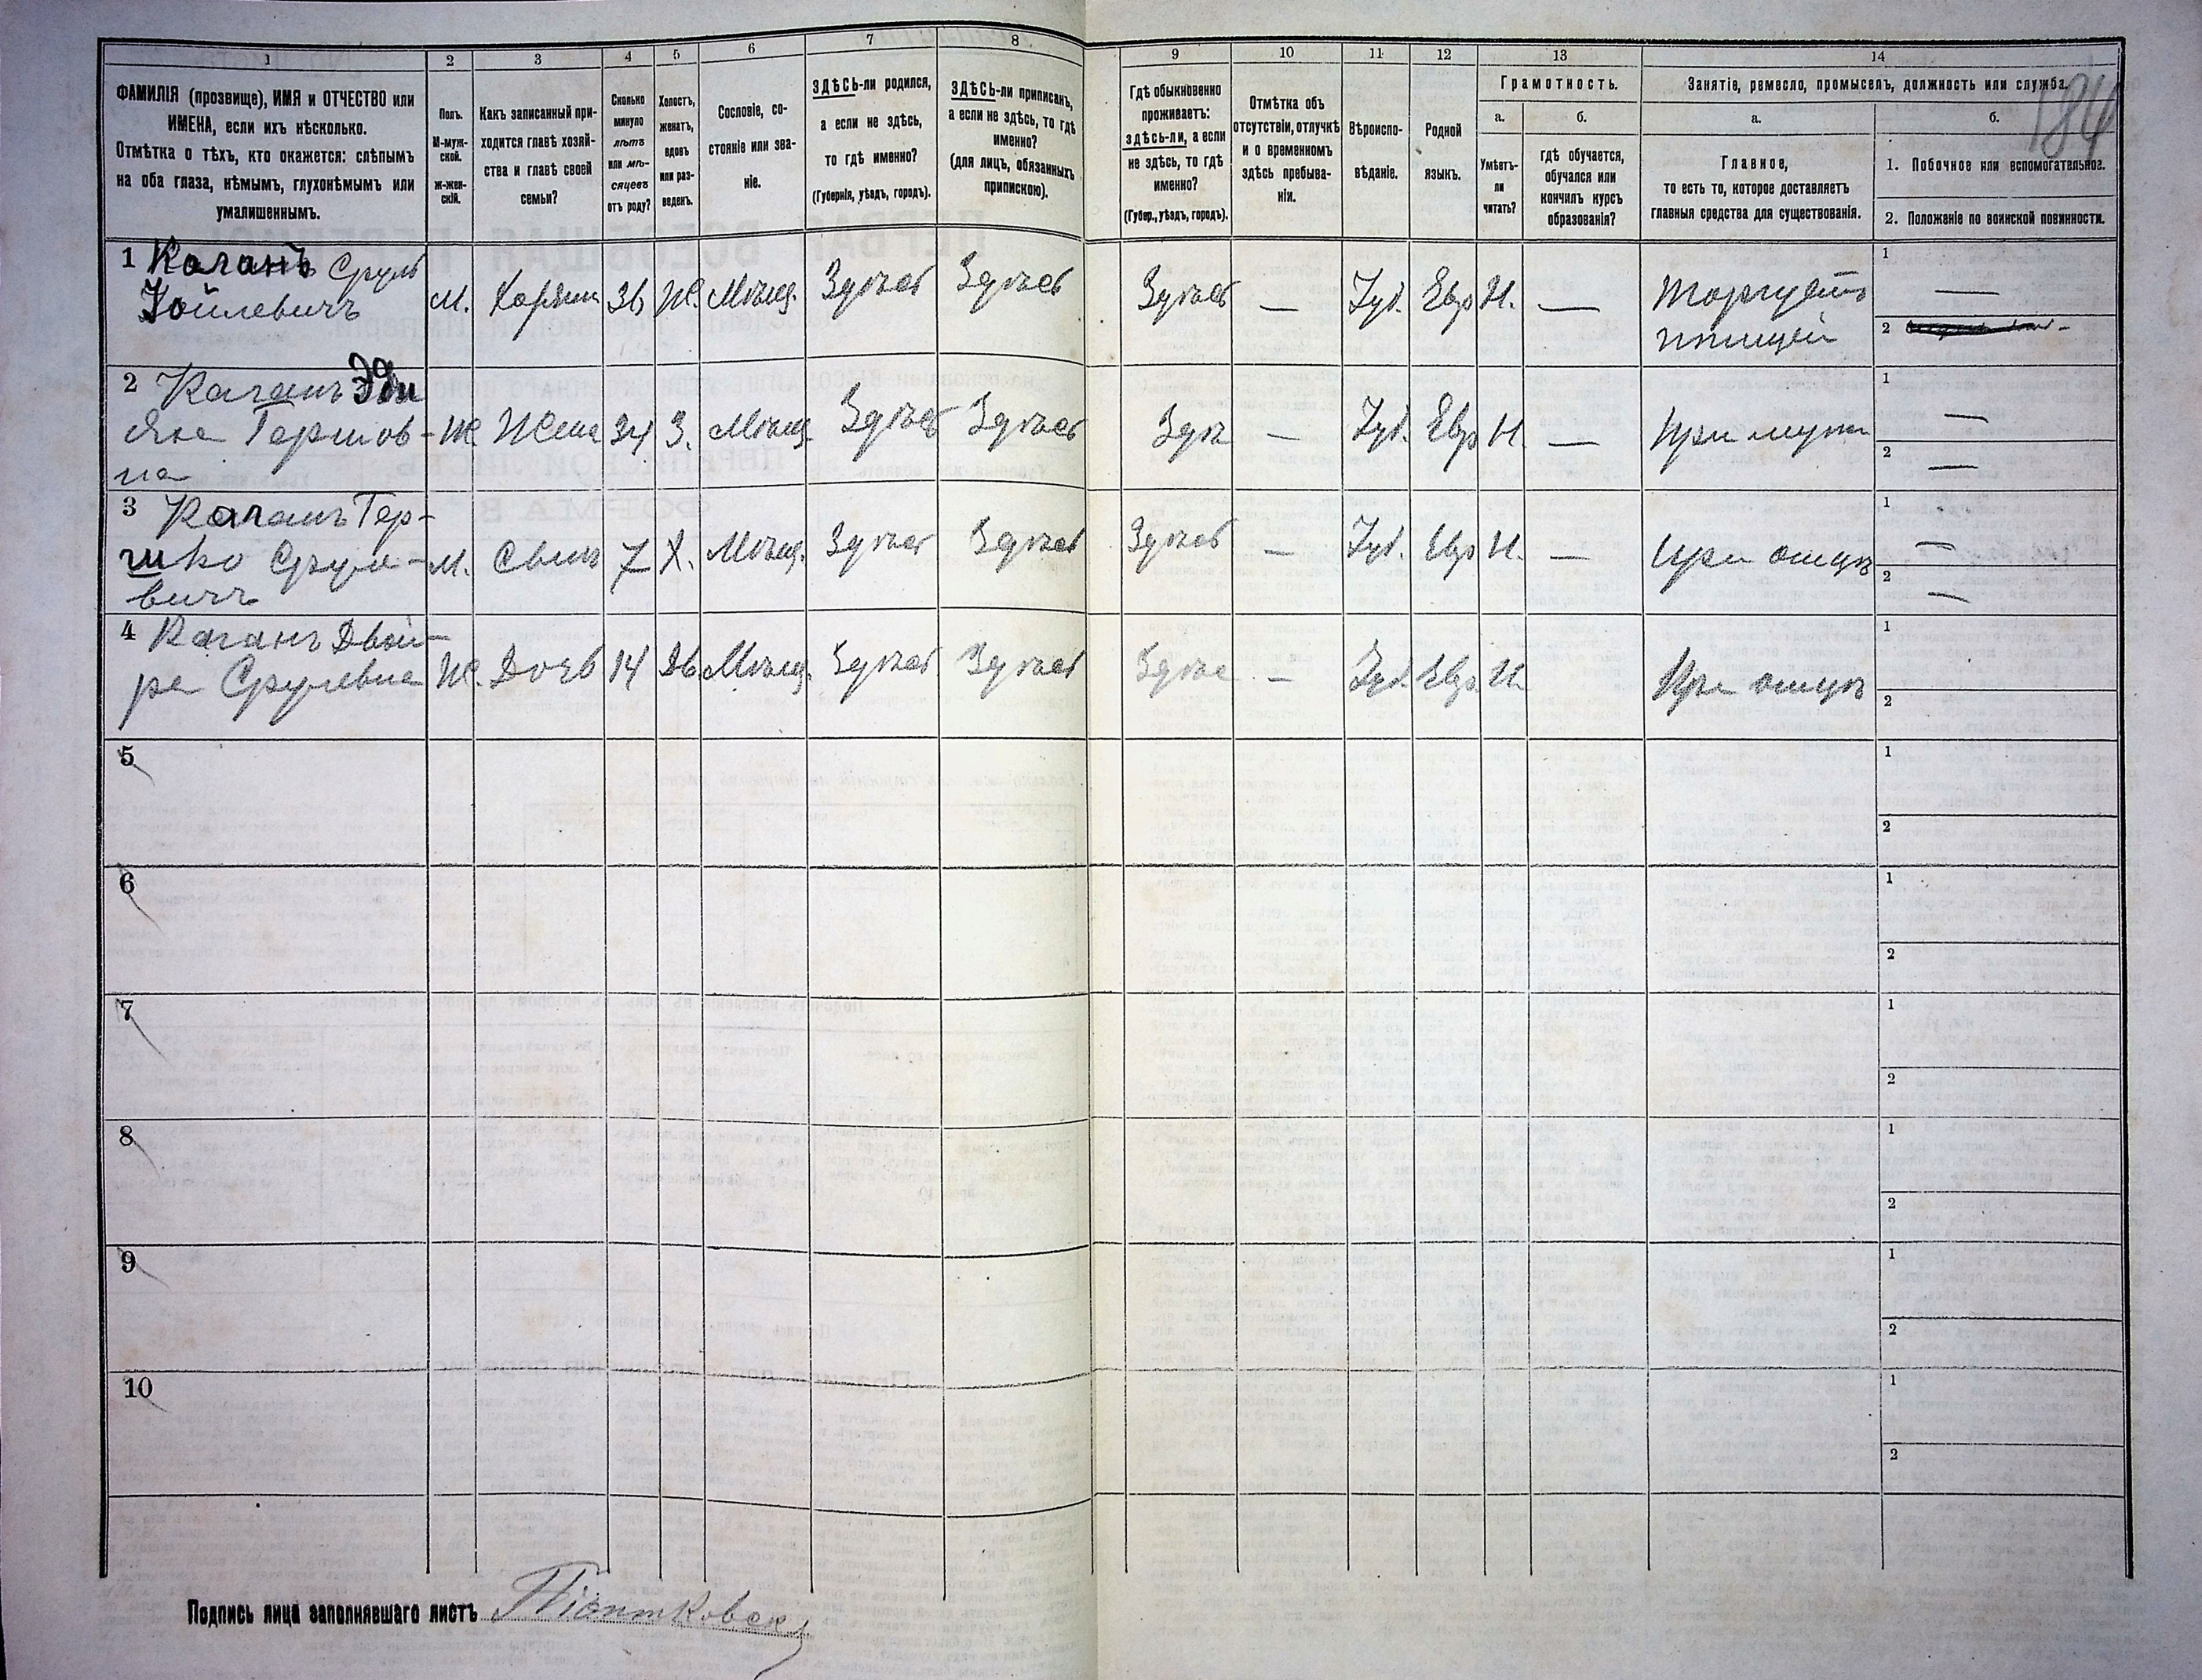 1 2 3 4 5 6 7 8 9 10 11 12 13 14
184
ФАМИЛІЯ (прозвище), ИМЯ и ОТЧЕСТВО или
ИМЕНА, если ихъ нѣсколько.
Отмѣтка о тѣхъ, кто окажется: слѣпымъ
на оба глаза, нѣмымъ, глухонѣмымъ или
умалишеннымъ.
Полъ.
М-муж-
ской.
ж-жен-
скій.
Какъ записанный при-
ходится главѣ хозяй-
ства и главѣ своей
семьи?
Сколько
минуло
лѣтъ
или мѣ-
сяцевъ
отъ роду?
Холостъ,
женатъ,
вдовъ
или раз-
веденъ.
Сословіе, со-
стояніе или зва-
ніе.
ЗДѢСЬ-ли родился,
а если не здѣсь,
то гдѣ именно?
(Губернія, уѣздъ, городъ).
ЗДѢСЬ-ли приписанъ,
а если не здѣсь, то гдѣ
именно?
(для лицъ, обязанныхъ
припискою).
Гдѣ обыкновенно
проживаетъ:
здѣсь-ли, а если
не здѣсь, то гдѣ
именно?
(Губер., уѣздъ, городъ).
Отмѣтка объ
отсутствіи, отлучкѣ
и о временномъ
здѣсь пребыва-
ніи.
Вѣроиспо-
вѣданіе.
Родной
языкъ.
Грамотность.
а.
Умѣетъ-
ли
читать?
б.
гдѣ обучается,
обучался или
кончилъ курсъ
образованія?
Занятіе, ремесло, промыселъ, должность или служба.
а.
Главное,
то есть то, которое доставляетъ
главныя средства для существованія.
б.
1. Побочное или вспомогательное.
2. Положеніе по воинской повинности.
1 Каганъ Сруль
Іойлевичъ
М. Хозяинъ 36 Ж. Мѣщ. Здѣсь Здѣсь Здѣсь — Іуд. Евр Н. —
Торгуетъ
птицей
1 —
2
2 Каганъ Эди
Яна Гершов-
на
Ж Жена 34 З. Мѣщ. Здѣсь Здѣсь Здѣ — Іуд. Евр Н. — При мужѣ
1 —
2 —
3 Каганъ Гер-
шко Сруле-
вичъ
М. Сынъ 7 Х. Мѣщ. Здѣсь Здѣсь Здѣсь — Іуд. Евр Н. — При отцѣ
1 —
2 —
4 Каганъ Двой-
ра Срулевна
Ж. Дочь 14 Дѣ Мѣщ. Здѣсь Здѣсь Здѣс — Іуд. Евр. Н. При отцѣ
1
2
5
1
2
6
1
2
7
1
2
8
1
2
9
1
2
10
1
2
Подпись лица заполнявшаго листъ